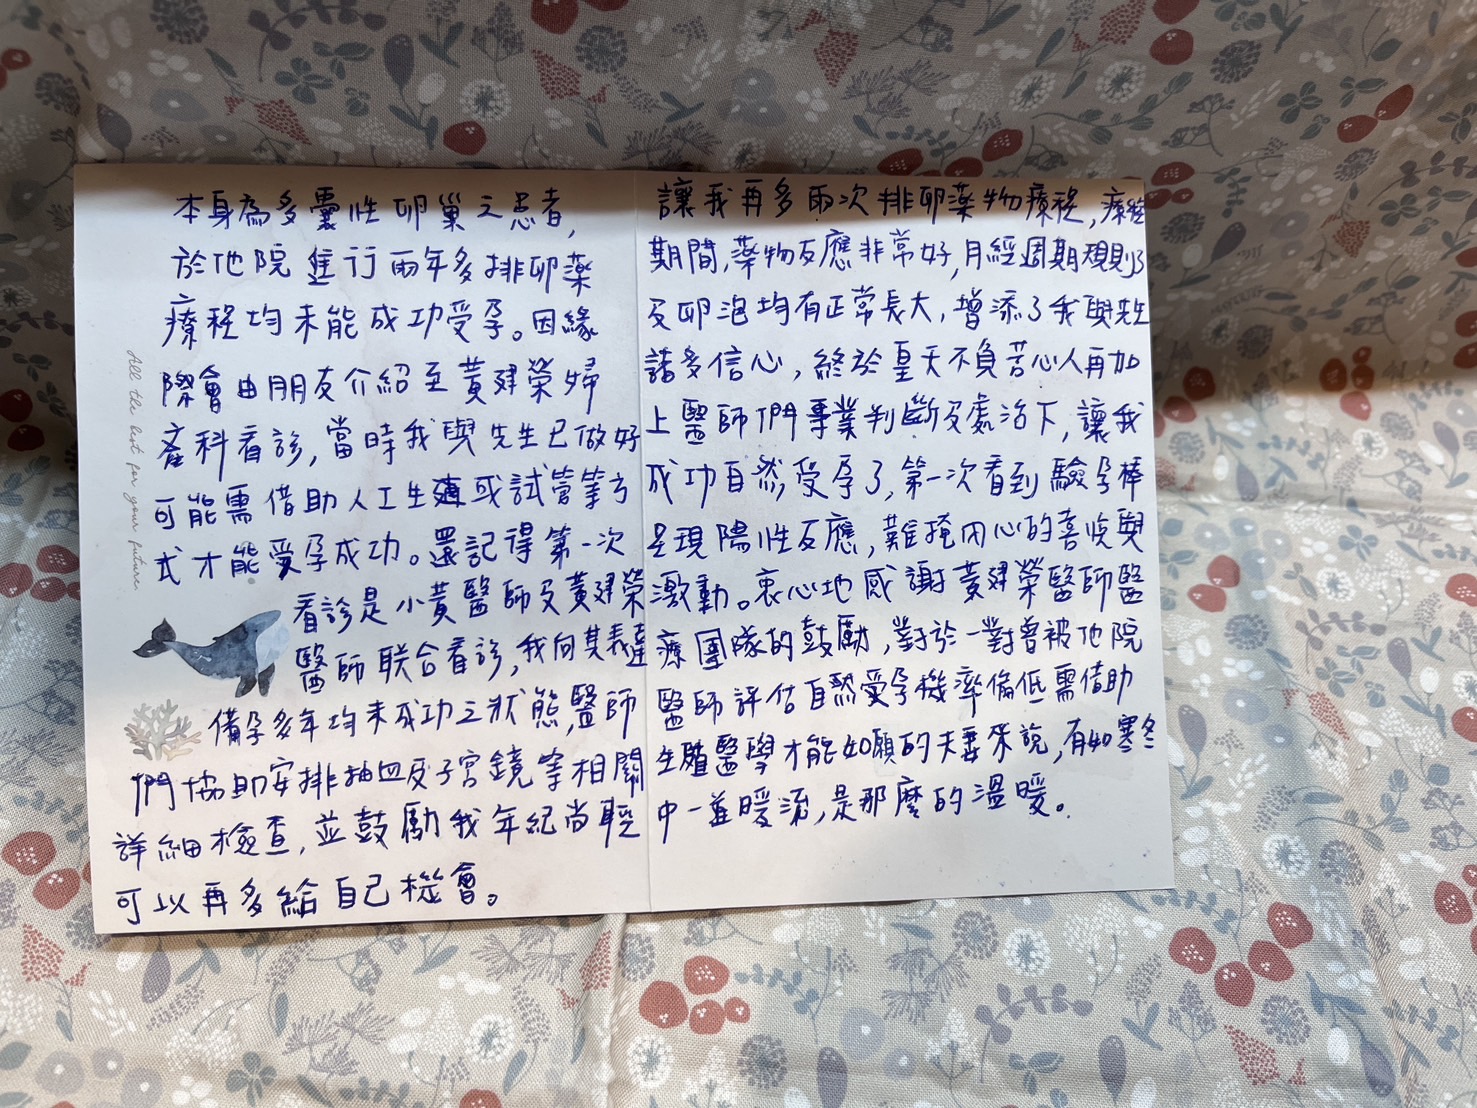 本身為多囊性卵巢之患者,
於他院進行兩年多排卵藥
療程均未能成功受孕。因緣
際會由朋友介紹至黃建榮婦
產科看診,當時我與先生已做好
可能需借助人工生殖或試管等方
式才能受孕成功。還記得第一次
看診是小黃醫師及黃建榮
醫師联合看診,我向其表達
備孕多年均未成功之狀態,醫師
們協助安排抽血及子宮鏡等相關
詳細檢查,並鼓勵我年紀尚輕
可以再多給自己機會。
All the best for your future.
讓我再多兩次排卵藥物療程,療程
期間,藥物反應非常好,月經週期規則
及卵泡均有正常長大,增添了我與先生
諸多信心,終於皇天不負苦心人再加
上醫師們專業判斷及處治下,讓我
成功自然受孕了,第一次看到驗孕棒
呈現陽性反應,難掩內心的喜悅與
激動。衷心地感謝黃建榮醫師醫
療團隊的鼓勵,對於一對曾被他院
醫師評估自然受孕機率偏低需借助
生殖醫學才能如願的夫妻來說,有如寒冬
中一道暖流,是那麼的溫暖。